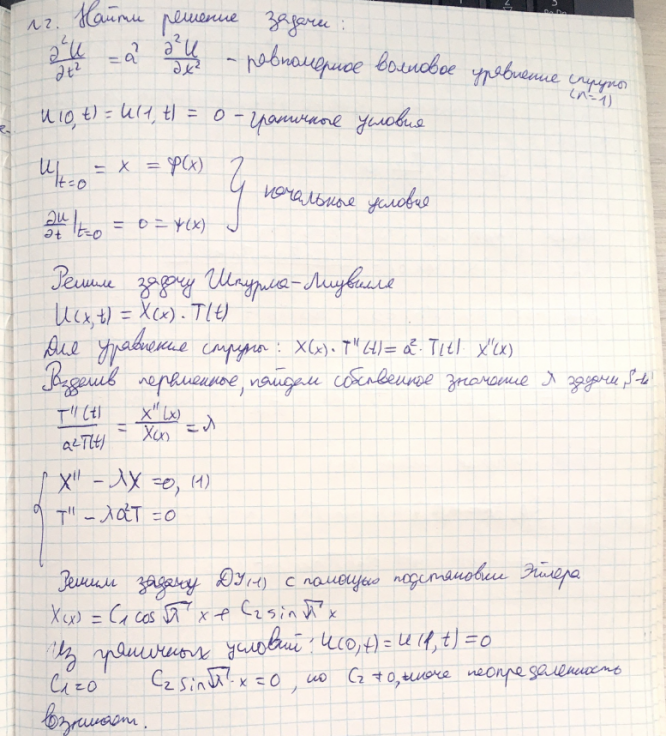 Найти решение задачи:
∂²u/∂t² = a² ∂²u/∂x² - равномерное волновое уравнение струны
(n=1)
u(0,t) = u(1,t) = 0 - граничные условия
u|t=0 = x = φ(x)
начальные условия
∂u/∂t|t=0 = 0 = ψ(x)
Решим задачу Штурма-Лиувилля
U(x,t) = X(x) · T(t)
Для уравнение струны: X(x) · T''(t) = a² · T(t) · X''(x)
Разделив переменное, найдем собственное значение λ задачи
T''(t)/a²T(t) = X''(x)/X(x) = λ
X'' - λX = 0, (1)
T'' - λa²T = 0
Решим задачу ДУ(1) с помощью подстановки Эйлера
X(x) = C₁ cos √λ x + C₂ sin √λ x
Из граничных условий: u(0,t) = u(1,t) = 0
C₁ = 0 C₂ sin √λ · x = 0, но C₂ ≠ 0, иначе неопределенность
возникает.